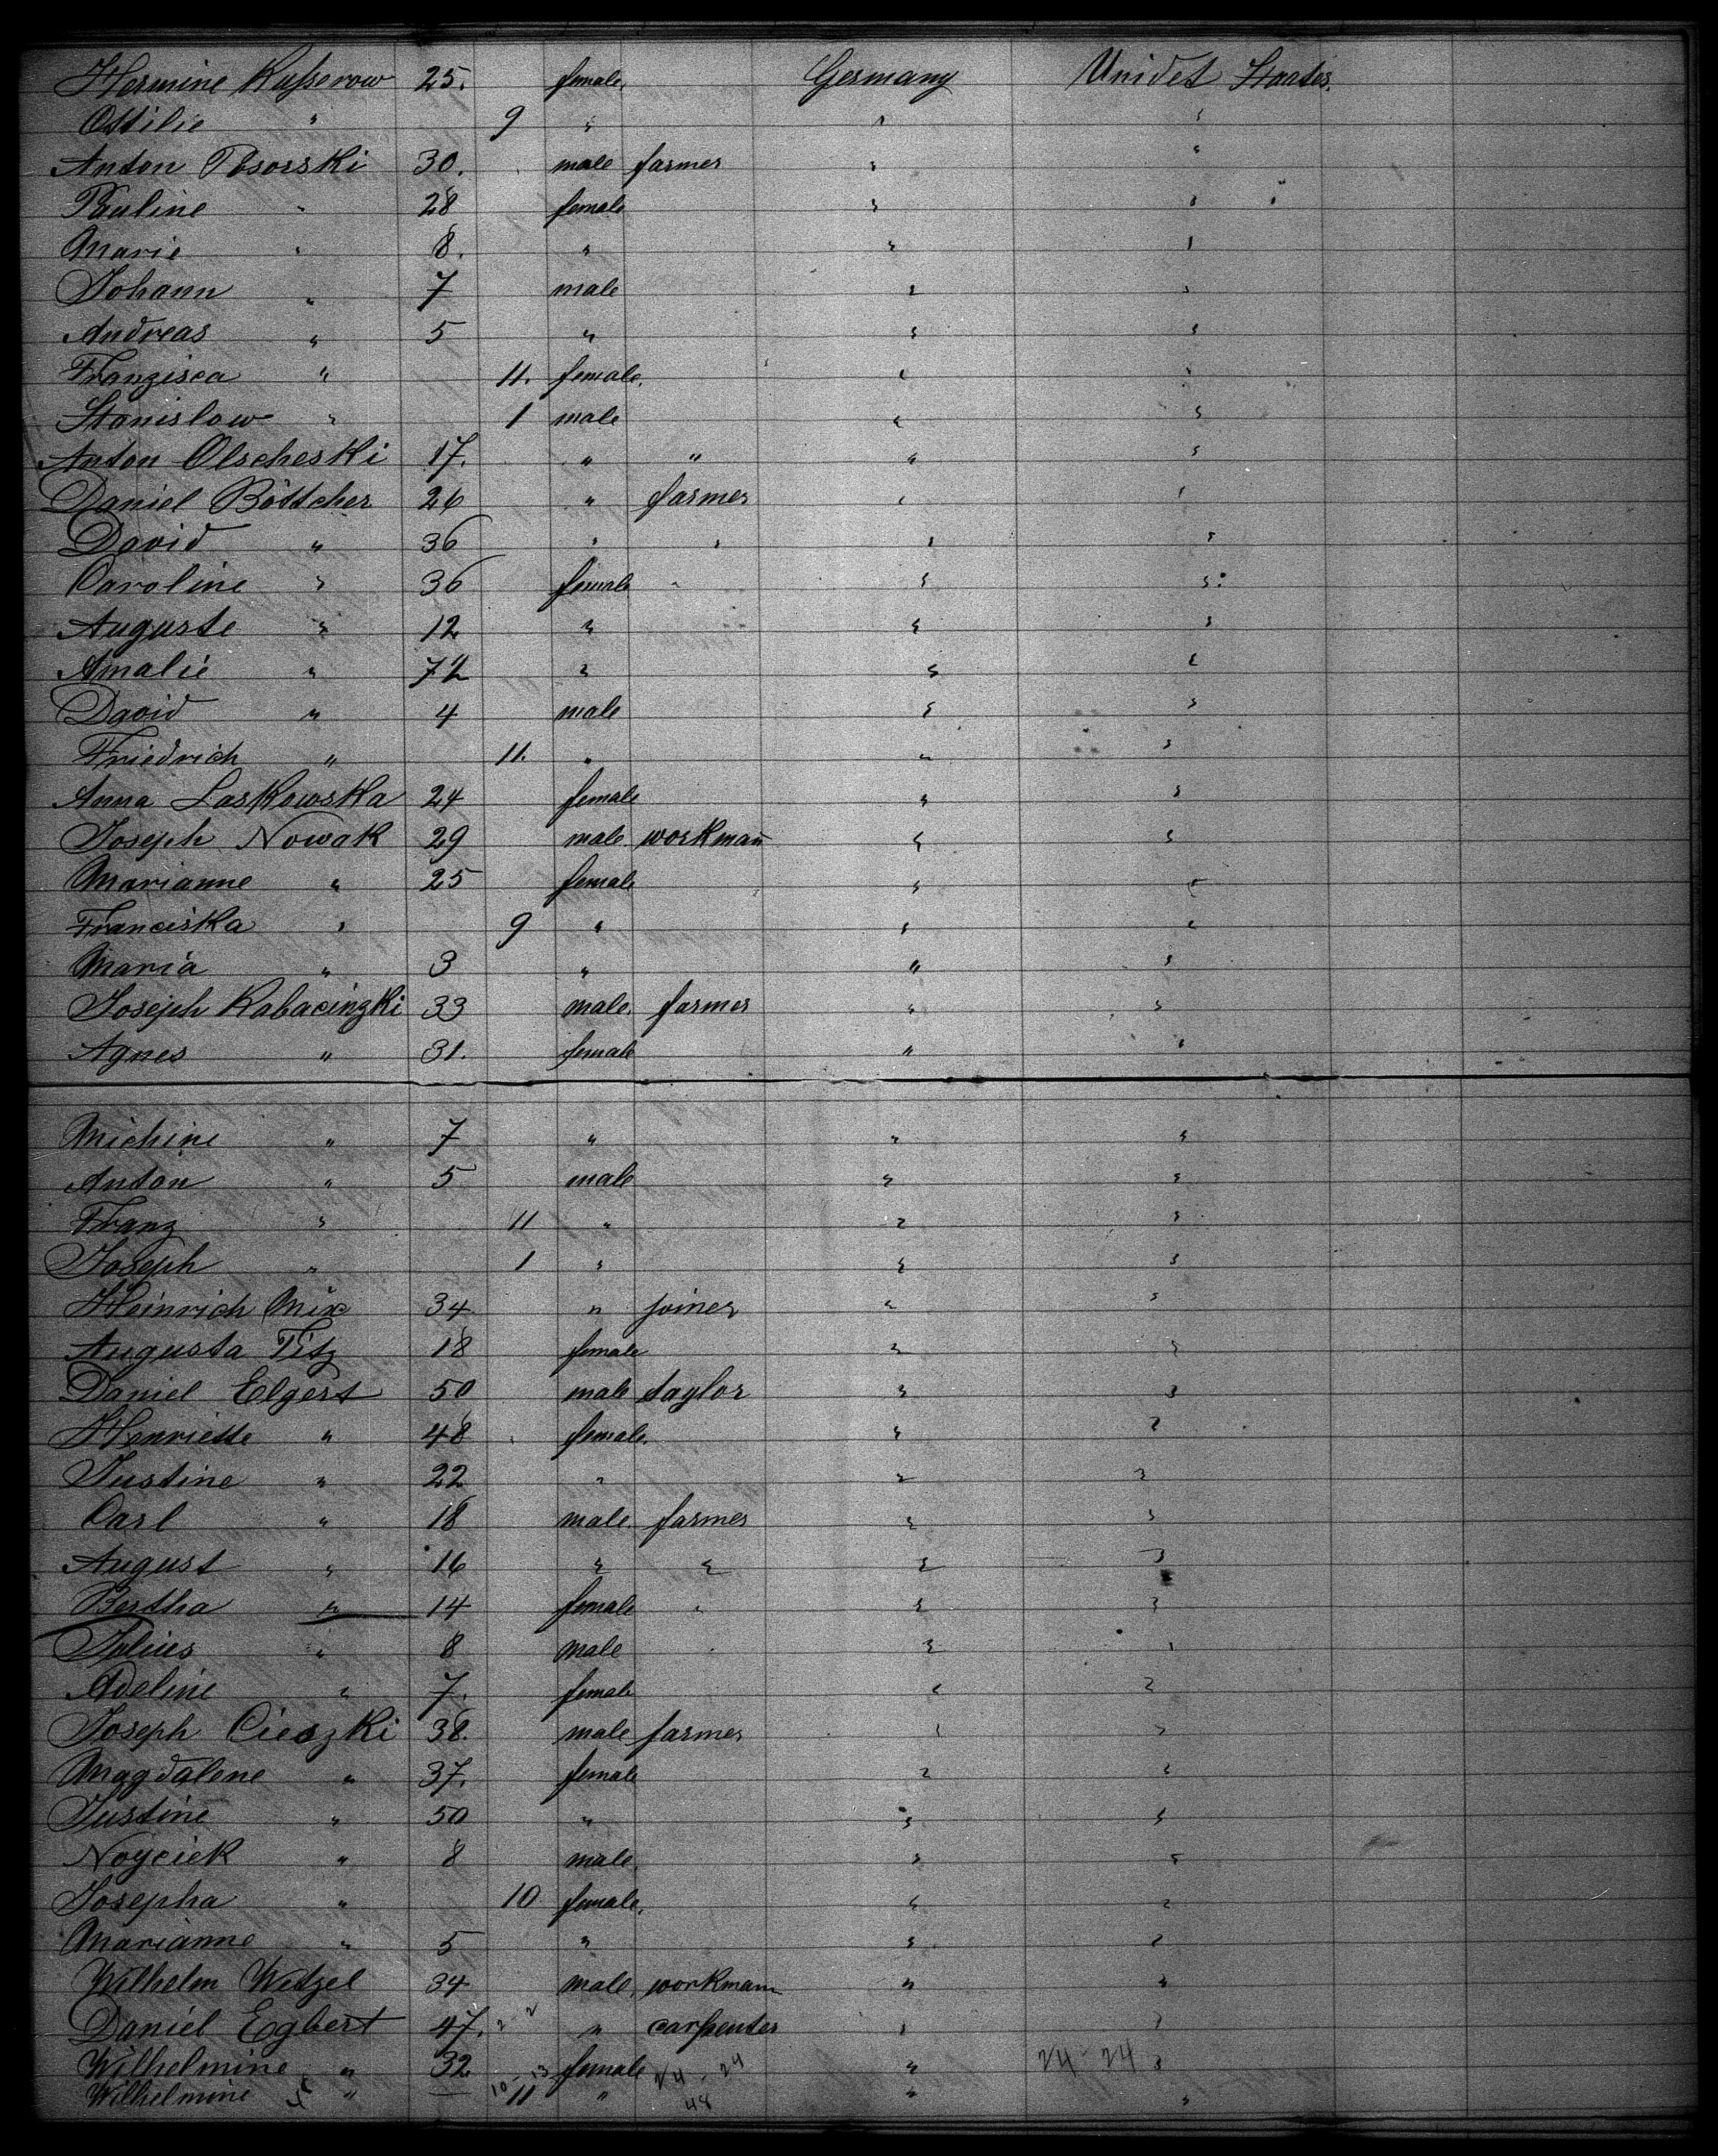 Hermine Kusserow 25. female. Germany Unidet Staates.
Ottilie " 9 " " "
Anton Posorski 30. male farmer " "
Pauline " 28 female " "
Marie " 8. " " "
Johann " 7 male " "
Andreas " 5 " " "
Franzisca " 11. female. " "
Stanislow " 1 male " "
Anton Olscheski 17. " " " "
Daniel Böttcher 26 " farmer " "
David " 36 " " " "
Caroline " 36 female " " "
Auguste " 12 " " "
Amalie " 7½ " " "
David " 4 male " "
Friedrich " 11. " " "
Anna Laskowska 24 female " "
Joseph Nowak 29 male workman " "
Marianne " 25 female " "
Franciska " 9 " " "
Maria " 3 " " "
Joseph Rabacinzki 33 male. farmer " "
Agnes " 31. female " "
Michine " 7 " " "
Anton " 5 male " "
Franz " 11 " " "
Joseph " 1 " " "
Heinrich Mix 34 " joiner " "
Augusta Titz 18 female " "
Daniel Elgert 50 male taylor " "
Henriette " 48 female. " "
Justine " 22 " " "
Carl " 18 male. farmer " "
August " 16 " " " "
Bertha " 14 female " " "
Julius " 8 male " "
Adeline " 7. female " "
Joseph Cieszki 38. male farmer " "
Magdalene " 37. female " "
Justine " 50 " " "
Noyciek " 8 male. " "
Josepha " 10 female. " "
Marianne " 5 " " "
Wilhelm Wetzel 34 male. workman " "
Daniel Egbert 47. " carpenter " "
Wilhelmine " 32 female 24 - 24 " 24 - 24 "
Wilhelmine " — 10 - 13 11 " 48 " "